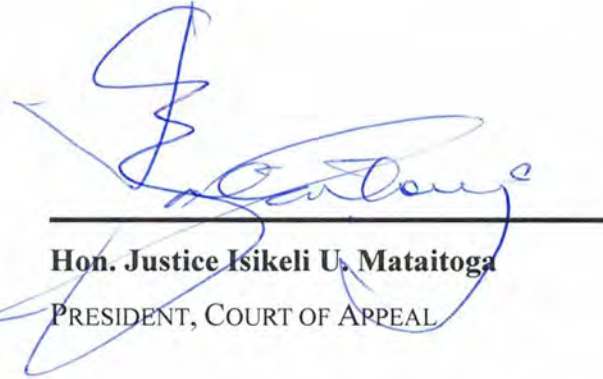 Hon. Justice Isikeli U. Mataitoga
PRESIDENT, COURT OF APPEAL